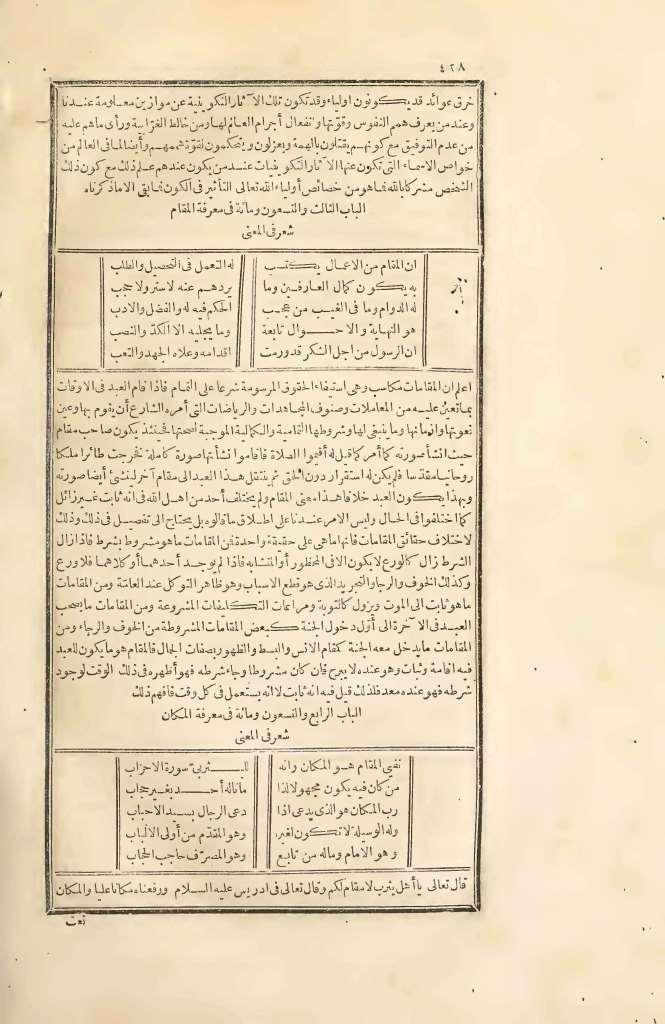 ٤٢٨
خرق عوائد قد يكونون اولياء وقد تكون تلك الآثار التكوينية عن موازين معلومة عندنا
وعند من يعرف همم النفوس وقوتها وانفعال أجرام العالم لها ومن خالط العزابية ورأى ما هم عليه
من عدم التوفيق مع كونهم يقتلون بالهمة ويعزلون ويتحكمون لقوة هممهم وأيضا لما في العالم من
خواص الاسماء التي تكون عنها الآثار التكوينيات عند من يكون عنده علم ذلك مع كون ذلك
الشخص مشركا بالله فما هو من خصائص أولياء الله تعالى التأثير في الكون فما بقى الا ما ذكرناه
الباب الثالث والتسعون ومائة في معرفة المقام
شعر في المعنى
ان المقام من الاعمال يكتسب له التعمل في التحصيل والطلب
به يكون كمال العارفين وما يردهم عنه لا ستر ولا حجب
له الدوام وما في الغيب من عجب الحكم فيه له والفضل والادب
هو النهاية والاحوال تابعة وما يجليه الا الكد والنصب
ان الرسول من اجل الشكر قد ورمت اقدامه وعلاه الجهد والتعب
اعلم ان المقامات مكاسب وهي استيفاء الحقوق المرسومة شرعا على التمام فاذا قام العبد في الاوقات
بما تعين عليه من المعاملات وصنوف المجاهدات والرياضات التي أمره الشارع أن يقوم بها وعين
نعوتها وأزمانها وما ينبغي لها وشروطها التمامية والكمالية الموجبة صحتها فحينئذ يكون صاحب مقام
حيث انشأ صورته كما أمر كما قيل له أقيموا الصلاة فأقاموا نشأتها صورة كاملة فخرجت طائرا ملكا
روحانيا مقدسا فلم يكن له استقرار دون الحق ثم ينتقل هذا العبد الى مقام آخر لينشئ أيضا صورته
وبهذا يكون العبد خلاقا هذا معنى المقام ولم يختلف أحد من اهل الله في انه ثابت غير زائل
كما اختلفوا في الحال وليس الامر عندنا على اطلاق ما قالوه بل يحتاج الى تفصيل في ذلك وذلك
لاختلاف حقائق المقامات فانها ما هي على حقيقة واحدة فمن المقامات ما هو مشروط بشرط فاذا زال
الشرط زال كالورع لا يكون الا في المحظور أو المتشابه فاذا لم يوجد أحدهما أو كلاهما فلا ورع
وكذلك الخوف والرجاء والتجريد الذي هو قطع الاسباب وهو ظاهر التوكل عند العامة ومن المقامات
ما هو ثابت الى الموت ويزول كالتوبة ومراعات التكليفات المشروعة ومن المقامات ما يصحب
العبد في الآخرة الى أول دخول الجنة كبعض المقامات المشروطة من الخوف والرجاء ومن
المقامات ما يدخل معه الجنة كمقام الانس والبسط والظهور بصفات الجمال فالمقام هو ما يكون للعبد
فيه اقامة وثبات وهو عنده لا يبرح فان كان مشروطا وجاء شرطه فهو أظهره في ذلك الوقت لوجود
شرطه فهو عنده معد فلذلك قيل فيه انه ثابت لا انه يستعمل في كل وقت فافهم ذلك
الباب الرابع والتسعون ومائة في معرفة المكان
شعر في المعنى
نفى المقام هو المكان وانه لليثربي سورة الاحزاب
من كان فيه يكون مجهولا لذا ما ناله أحد بغير حجاب
رب المكان هو الذي يدعى اذا دعى الرجال بسيد الاحباب
وله الوسيلة لا تكون لغيره وهو المقدم من أولى الالباب
وهو الامام وماله من تابع وهو المصرف حاجب الحجاب
قال تعالى يا أهل يثرب لا مقام لكم وقال تعالى في ادريس عليه السلام ورفعناه مكانا عليا والمكان
نعت